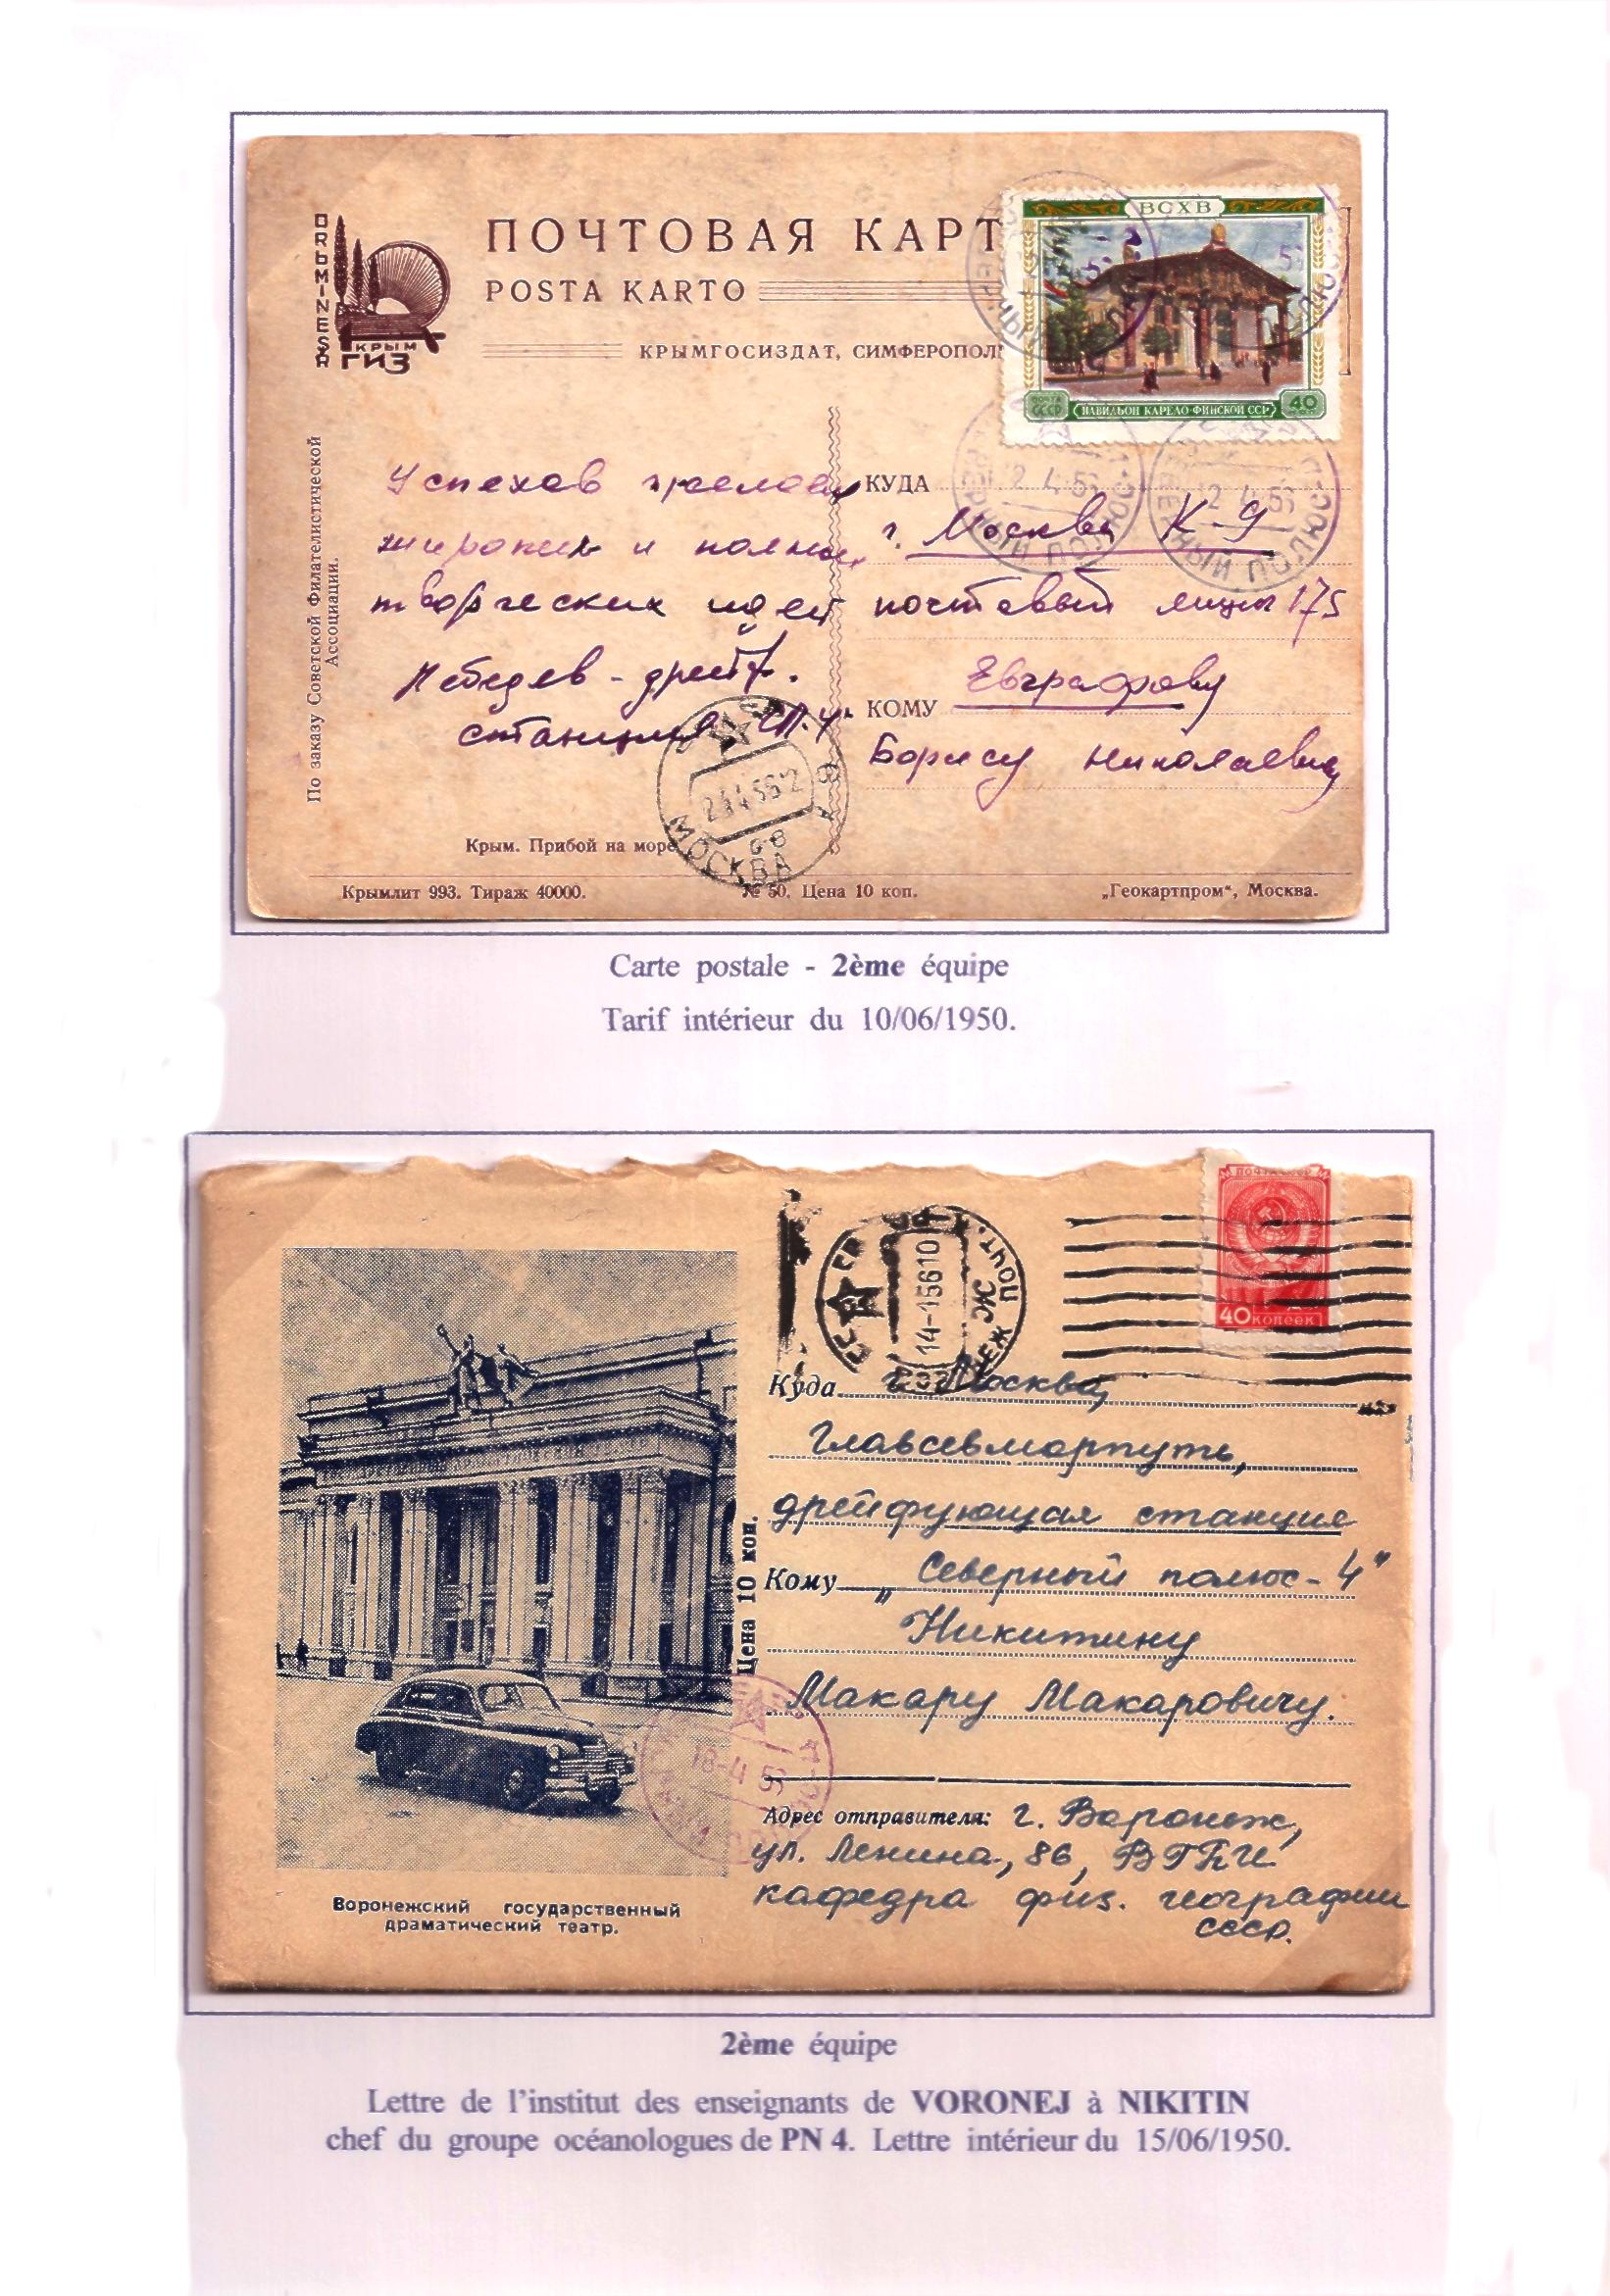 ПОЧТОВАЯ КАРТ
POSTA KARTO
КРЫМГОСИЗДАТ, СИМФЕРОПОЛ
QRЬMINEŞR
КРЫМ
ГИЗ
ВСХВ
ПОЧТА СССР
ПАВИЛЬОН КАРЕЛО-ФИНСКОЙ ССР
40
По заказу Советской Филателистической
Ассоциации.
Успехов
широких и полных
творческих идей
Лебедев - дрейф.
станция "СП-4"
КУДА
2 4 56
2 4 56
г. Москва К-9
почтовый ящик 175
КОМУ
Евграфову
Борису Николаевичу
23456-12
МОСКВА
Крым. Прибой на море
Крымлит 993. Тираж 40000.
№ 50. Цена 10 коп.
„Геокартпром“, Москва.
Carte postale - 2ème équipe
Tarif intérieur du 10/06/1950.
ПОЧТА СССР
40 КОПЕЕК
14-15610
ПОЧТ.
Куда г. Москва,
Главсевморпуть,
дрейфующая станция
Кому „Северный полюс-4"
Никитину
Макару Макаровичу.
Цена 10 коп.
18-4 56
Адрес отправителя: г. Воронеж,
ул. Ленина, 86, ВГПИ
кафедра физ. географии
СССР.
Воронежский государственный
драматический театр.
2ème équipe
Lettre de l'institut des enseignants de VORONEJ à NIKITIN
chef du groupe océanologues de PN 4. Lettre intérieur du 15/06/1950.